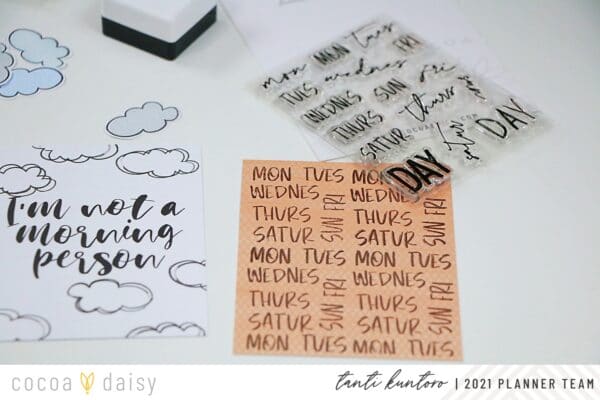 mon MON tues
TUES wednes FRI
WEDNES SUN fri
THURS thurs
SATUR
DAY DAY
I'm not a
morning
person
MON TUES MON TUES
WEDNES WEDNES
THURS SUN FRI THURS SUN FRI
SATUR SATUR
MON TUES MON TUES
WEDNES WEDNES
THURS SUN FRI THURS SUN FRI
SATUR SATUR
MON TUES MON TUES
cocoa daisy
tanti kuntoro | 2021 PLANNER TEAM